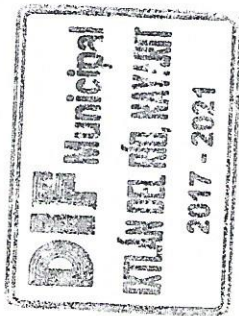 DIF Municipal
IXTLÁN DEL RÍO, NAYARIT
2017 - 2021